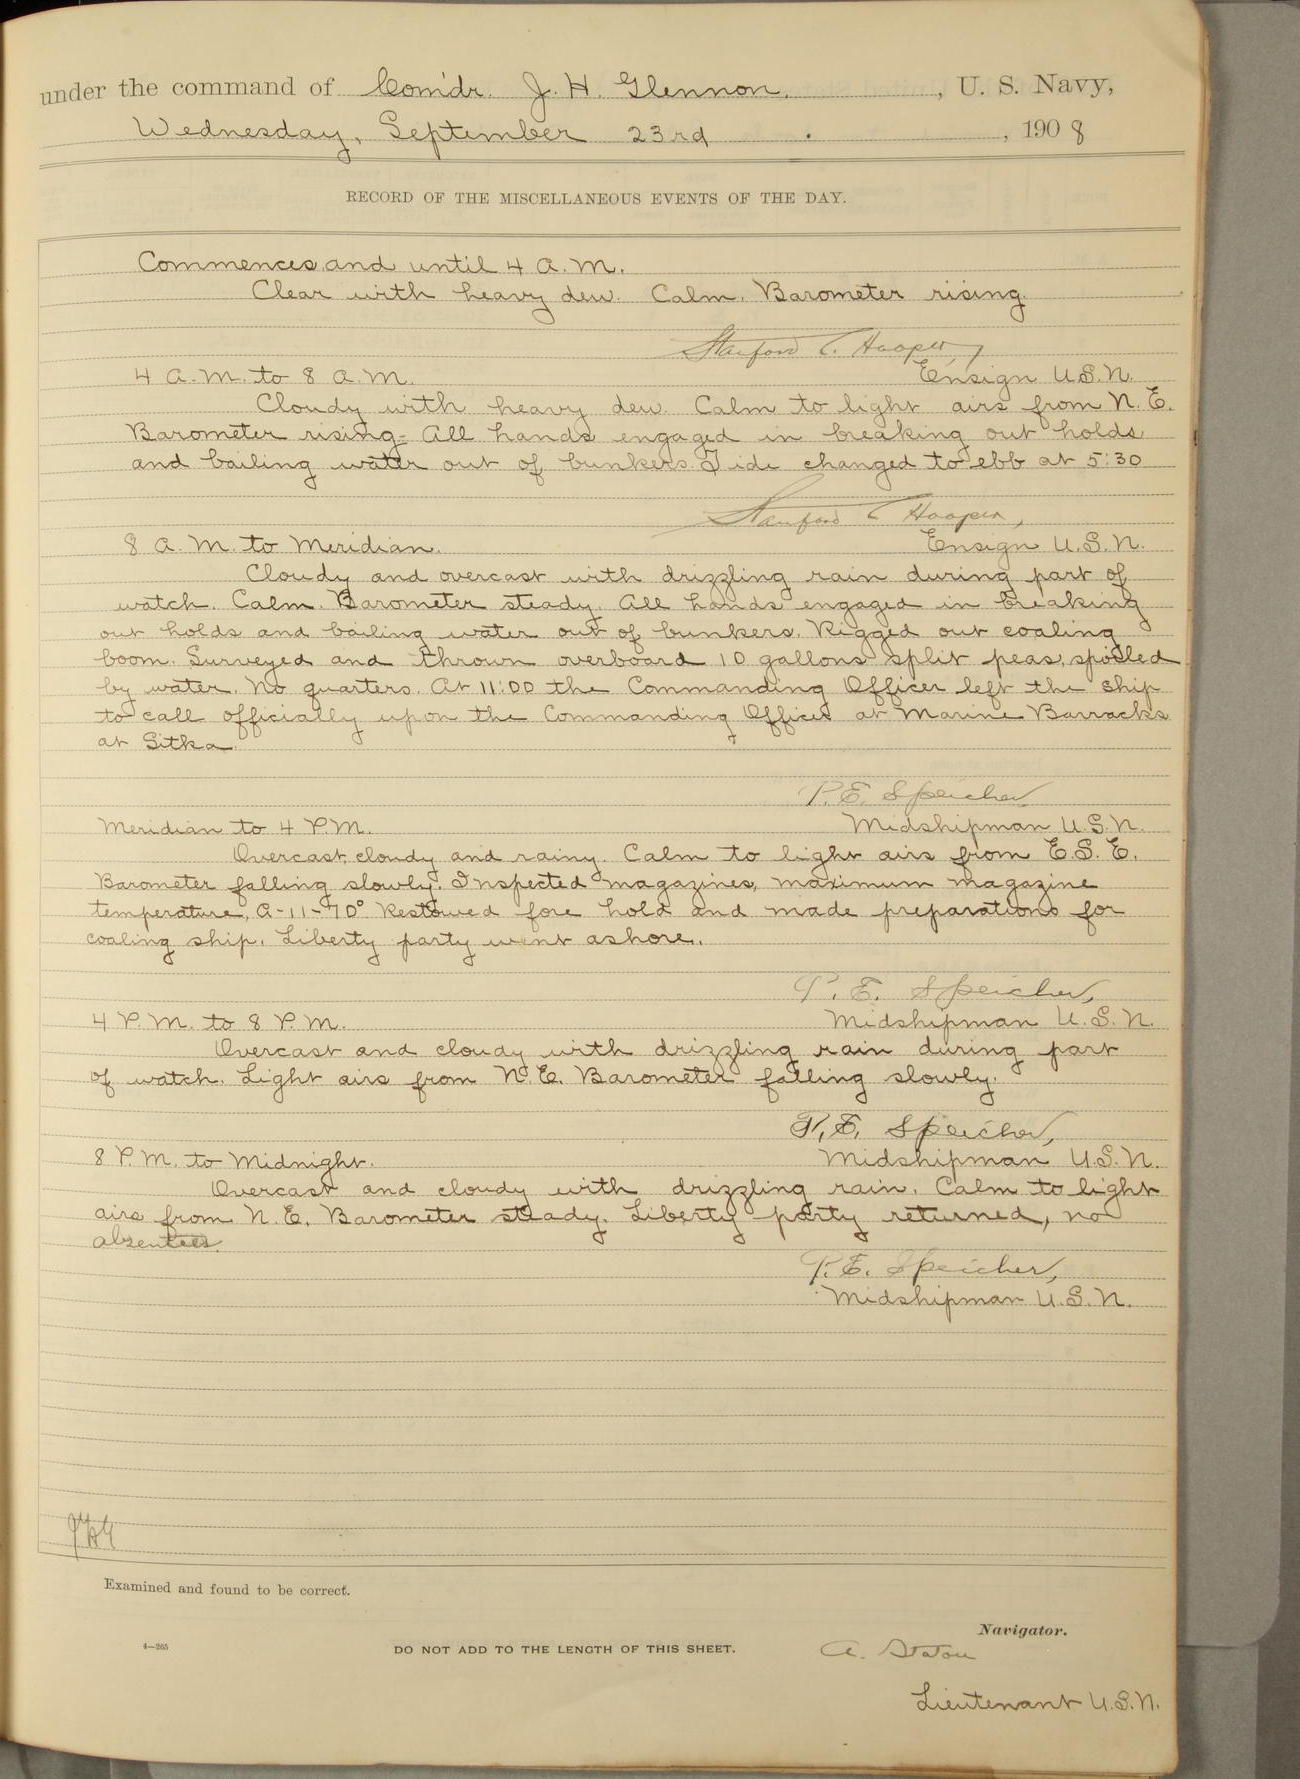 under the command of Com'dr. J. H. Glennon, U. S. Navy,
Wednesday, September 23rd, 1908
RECORD OF THE MISCELLANEOUS EVENTS OF THE DAY.
Commences and until 4 A.M.
Clear with heavy dew. Calm. Barometer rising.
Stanford C. Hooper,
4 A.M. to 8 A.M. Ensign U.S.N.
Cloudy with heavy dew. Calm to light airs from N.E.
Barometer rising. All hands engaged in breaking out holds
and bailing water out of bunkers. Tide changed to ebb at 5:30
Stanford C Hooper,
8 A.M. to Meridian. Ensign U.S.N.
Cloudy and overcast with drizzling rain during part of
watch. Calm. Barometer steady. All hands engaged in breaking
out holds and bailing water out of bunkers. Rigged out coaling
boom. Surveyed and thrown overboard 10 gallons split peas, spoiled
by water. No quarters. At 11:00 the Commanding Officer left the ship
to call officially upon the Commanding Officer at Marine Barracks
at Sitka.
P.E. Speicher
Meridian to 4 P.M. Midshipman U.S.N.
Overcast, cloudy and rainy. Calm to light airs from E.S.E.
Barometer falling slowly. Inspected magazines, maximum magazine
temperature, A-11-70° Restowed fore hold and made preparations for
coaling ship. Liberty party went ashore.
P. E. Speicher,
4 P.M. to 8 P.M. Midshipman U.S.N.
Overcast and cloudy with drizzling rain during part
of watch. Light airs from N.E. Barometer falling slowly.
P. E. Speicher,
8 P.M. to Midnight. Midshipman U.S.N.
Overcast and cloudy with drizzling rain. Calm to light
airs from N.E. Barometer steady. Liberty party returned, no
absentees.
P. E. Speicher,
Midshipman U.S.N.
JHG
Examined and found to be correct.
Navigator.
4—265 DO NOT ADD TO THE LENGTH OF THIS SHEET. A. Staton
Lieutenant U.S.N.